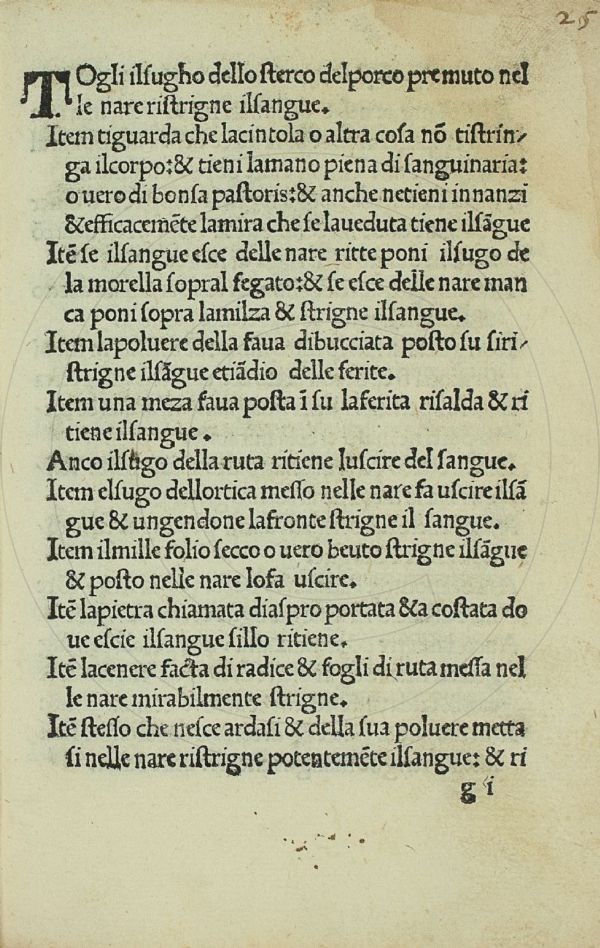 25
TOgli ilſugho dello ſterco delporco premuto nel
le nare riſtrigne ilſangue.
Item tiguarda che lacintola o altra coſa nō tiſtrin⸗
ga ilcorpo:& tieni lamano piena di ſanguinaria:
o uero di borſa paſtoris:& anche netieni innanzi
&efficacemēte lamira che ſe laueduta tiene ilſāgue
Itē ſe ilſangue eſce delle nare ritte poni ilſugo de
la morella ſopral fegato:& ſe eſce delle nare man
ca poni ſopra lamilza & ſtrigne ilſangue.
Item lapoluere della faua dibucciata poſto su ſiri⸗
ſtrigne ilſāgue etiādio delle ferite.
Item una meza faua poſta ī ſu laferita riſalda & ri
tiene ilſangue.
Anco ilſugo della ruta ritiene luſcire del ſangue.
Item elſugo dellortica meſſo nelle nare fa uſcire ilſā
gue & ungendone lafronte ſtrigne il ſangue.
Item ilmille folio ſecco o uero beuto ſtrigne ilſāgue
& poſto nelle nare lofa uſcire.
Itē lapietra chiamata diaſpro portata &a coſtata do
ue eſcie ilſangue ſillo ritiene.
Itē lacenere facta di radice & fogli di ruta meſſa nel
le nare mirabilmente ſtrigne.
Itē ſteſſo che neſce ardaſi & della ſua poluere metta
ſi nelle nare riſtrigne potentemēte ilſangue: & ri
g i